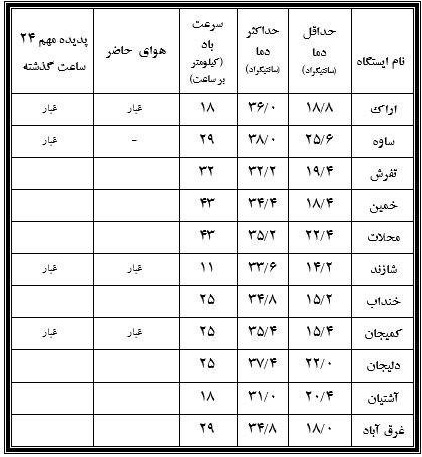 نام ایستگاه | حداقل دما (سانتیگراد) | حداکثر دما (سانتیگراد) | سرعت باد (کیلومتر بر ساعت) | هوای حاضر | پدیده مهم ۲۴ ساعت گذشته
اراک | ۱۸/۸ | ۳۶/۰ | ۱۸ | غبار | غبار
ساوه | ۲۵/۶ | ۳۸/۰ | ۲۹ | - | غبار
تفرش | ۱۹/۴ | ۳۲/۲ | ۳۲
خمین | ۱۸/۴ | ۳۴/۴ | ۴۳
محلات | ۲۲/۴ | ۳۵/۲ | ۴۳
شازند | ۱۴/۲ | ۳۳/۶ | ۱۱ | غبار | غبار
خنداب | ۱۵/۲ | ۳۴/۸ | ۲۵
کمیجان | ۱۵/۴ | ۳۵/۴ | ۲۵ | غبار | غبار
دلیجان | ۲۲/۰ | ۳۷/۴ | ۲۵
آشتیان | ۲۰/۴ | ۳۱/۰ | ۱۸
غرق آباد | ۱۸/۰ | ۳۴/۸ | ۲۹